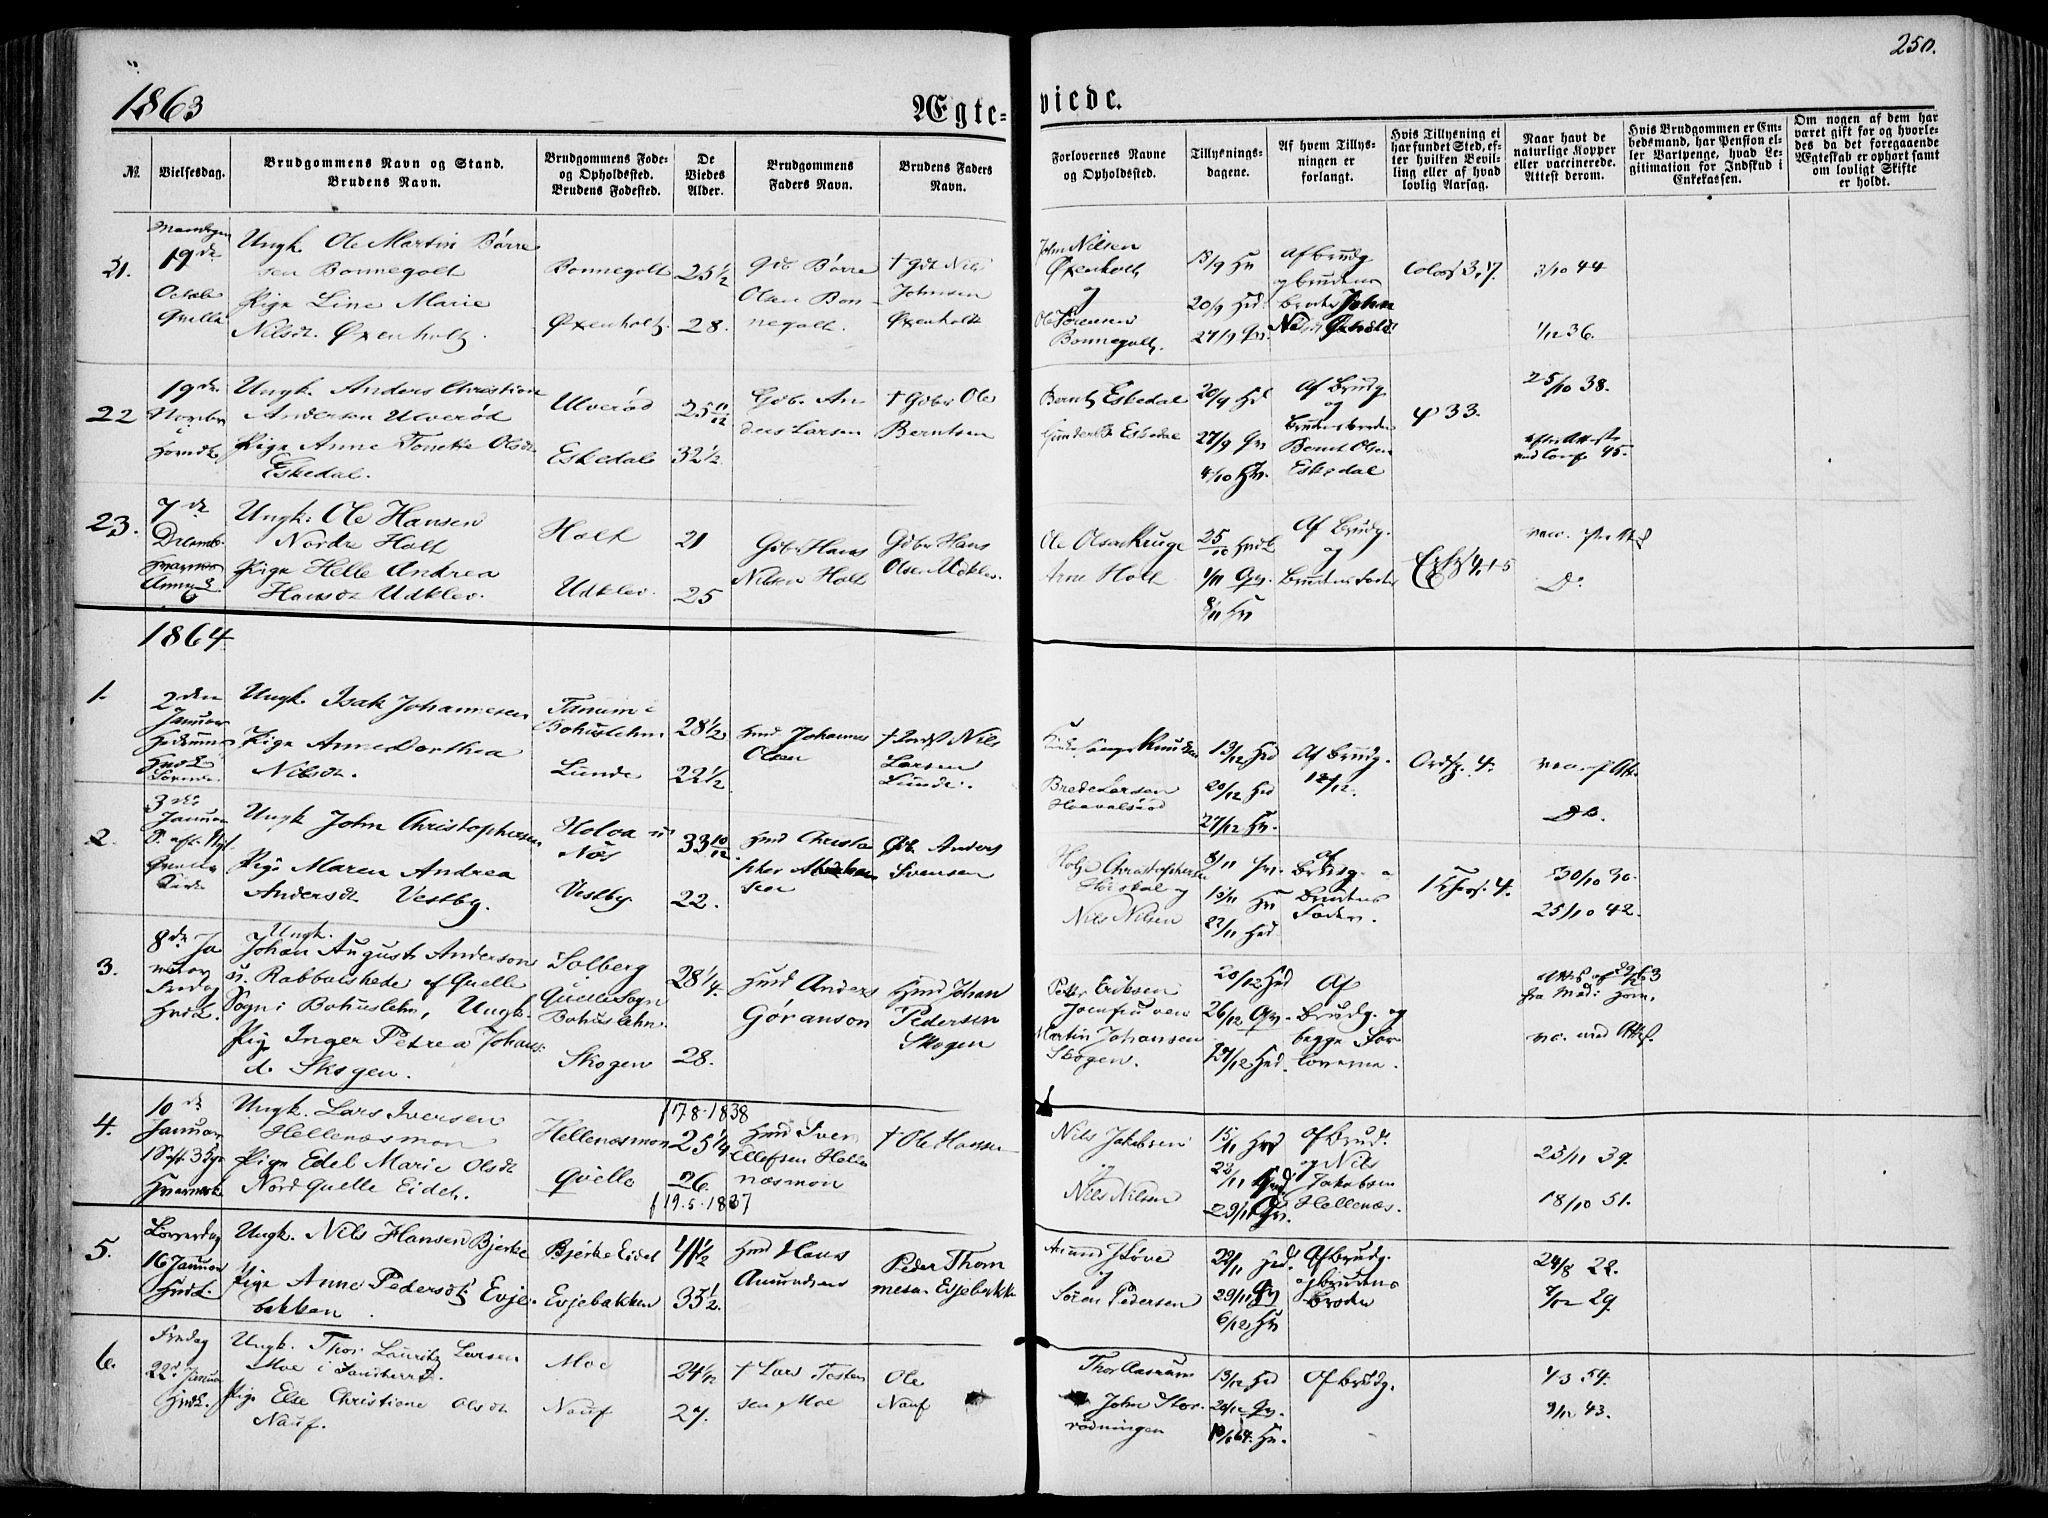 250.
1863
Ægte-
viede.
№
Vielsesdag.
Brudgommens Navn og Stand.
Brudens Navn.
Brudgommens Føde-
og Opholdssted.
Brudens Fødested.
De
Viedes
Alder.
Brudgommens
Faders Navn.
Brudens Faders
Navn.
Forlovernes Navne
og Opholdssted.
Tillysnings-
dagene.
Af hvem Tillys-
ningen er
forlangt.
Hvis Tillysning ei
har fundet Sted, ef-
ter hvilken Bevil-
ling eller af hvad
lovlig Aarsag.
Naar havt de
naturlige Kopper
eller vaccinerede.
Attest derom.
Hvis Brudgommen er Em-
bedsmand, har Pension el-
ler Vartpenge, hvad Le-
gitimation for Indskud i
Enkekassen.
Om nogen af dem har
været gift før og hvorle-
des da det foregaaende
Ægteskab er ophørt samt
om lovligt Skifte
er holdt.
21.
Mandagen
19de
Octob
Quelle
Ungk. Ole Martin Børre
sen Bonnegolt
Pige Line Marie
Nilsdt. Øxenholt.
Bonnegolt
Øxenholt
25 1/2
28.
Gdb Børre
Olsen Bon-
negolt.
† Gdb Nils
Johnsen
Øxenholt
John Nilsen
Øxenholt
og
Ole Sørensen
Bonnegolt.
13/9 Hv
20/9 Hvd.
27/9 Qv.
Af brudg
og brudens
broder John
3/10 44
1/12 36.
22
19de
Novbr
i
Hvedst
Ungk. Anders Christian
Andersen Ulverød
Pige Anne Tonette Olsdt
Eskedal.
Ulverød
Eskedal
25 11/12
32 1/2
Gdbr. An
ders Larsen
† Gdbr Ole
Berntsen
Bernt Eskedal
Gunder Eskedal
20/9 Hd
27/9 Qv
4/10 Hv.
Af Brudg.
og
Brudens broder
Bernt Olsen
Eskedal
33.
25/10 38.
efter Attest
ved Conf. 45.
23.
7de
Decemb.
Ungk. Ole Hansen
Nordre Holt
Pige Helle Andrea
Hansdt Udklev.
Holt
Udklev.
21
25
Gdbr Hans
Nilsen Holt
Gdbr Hans
Olsen Udklev.
Ole Olsen Kruge
Arne Holt
25/10 Hvd
1/11 Qv.
8/11 Hv
Af Brudg.
og
Brudens Fader
vac. efter Att
Do
1864
1.
2den
Januar
Ungk. Isak Johannesen
Pige Anne Dorthea
Nilsdt.
Tanum i
Bohuslehn
Lunde
28 1/2
22 1/2
Hmd Johannes
Olsen
† Nils
Larsen
Lunde.
Kirkesanger Knudsen
Brede Larsen
13/12 Hd
20/12 Hd
27/12 Hv.
Af Brudg.
12/12.
4.
vac. f. Att.
Do.
2.
3die
Januar
Ungk John Christophersen
Pige Maren Andrea
Andersdt Vestby.
Vestby.
33 10/12
22.
Hmd Christo
pher Abraham
sen
Gdb. Anders
Svensen
Christophersen
og
Nils Nilsen
8/11 Qv.
15/11 Hv
22/11 Hd.
af
Brudg. o
Brudens
Fader.
4.
30/10 30.
25/10 42.
3.
8de Ja
nuar
Fredag
Hvd.
Ungk.
Johan August Anderson
v. Rabbalshede af Quelle
Sogn i Bohuslehn, Ungk.
Pig Inger Petrea Johans
d. Skogen.
Solberg
Quelle Sogn
Bohuslehn
Skogen
28 1/4.
28.
Hmd Anders
Göranson
Hmd Johan
Pedersen
Skogen
Petter Eriksen
Martin Johansen
Skogen.
20/12 Hd
26/12 Qv.
27/12 Hd.
Af
Brudg. og
begge For
loverne.
vac. med Att.
4.
10de
Januar
Ungk. Lars Iversen
Hellenæsmon
Pige Edel Marie Olsdt
Nord Quelle Eidet.
Hellenæsmon
Quelle
f 17.8.1838
25 1/4
26
f 19.5.1837
Hmd Iver
Ellefsen Helle
næsmon
† Ole Hansen
Nils Jakobsen
og
Nils Nilsen
15/11 Hvd
22/11 Hvd.
29/11 Qv.
af Brud.
og Nils
Jakobsen
Hellenæs.
23/11 39.
18/10 51.
5.
Løverdag
16 Januar
Hvd.
Ungk. Nils Hansen Bjerke
Pige Anne Pedersdt. Evje-
bakken
Bjerke Eidet
Evjebakken
41 1/2
35 1/2.
Hmd Hans
Amundsen
Peder Thom
mesen Evjebakk
Amund Støve
og
Søren Pedersen
22/11 Hd.
29/11 Qv
6/12 Hv
Af Brudg.
og Brudens
Broder
24/8 22.
9/12 29.
6.
Fredag
22d Janua
Hvd.
Ungk. Thor Lauritz Larsen
Moe i Sandherred.
Pige Else Christiane Olsdt
Nauf.
Moe
Nauf
24 1/12
27.
† Lars Tosten
sen Moe
Ole
Nauf
Thor Aasrum
John Stor-
rødningen
13/12 Hd
20/12 Qv.
10/1 64. Hv.
Af Brudg.
4/3 54.
9/12 43.